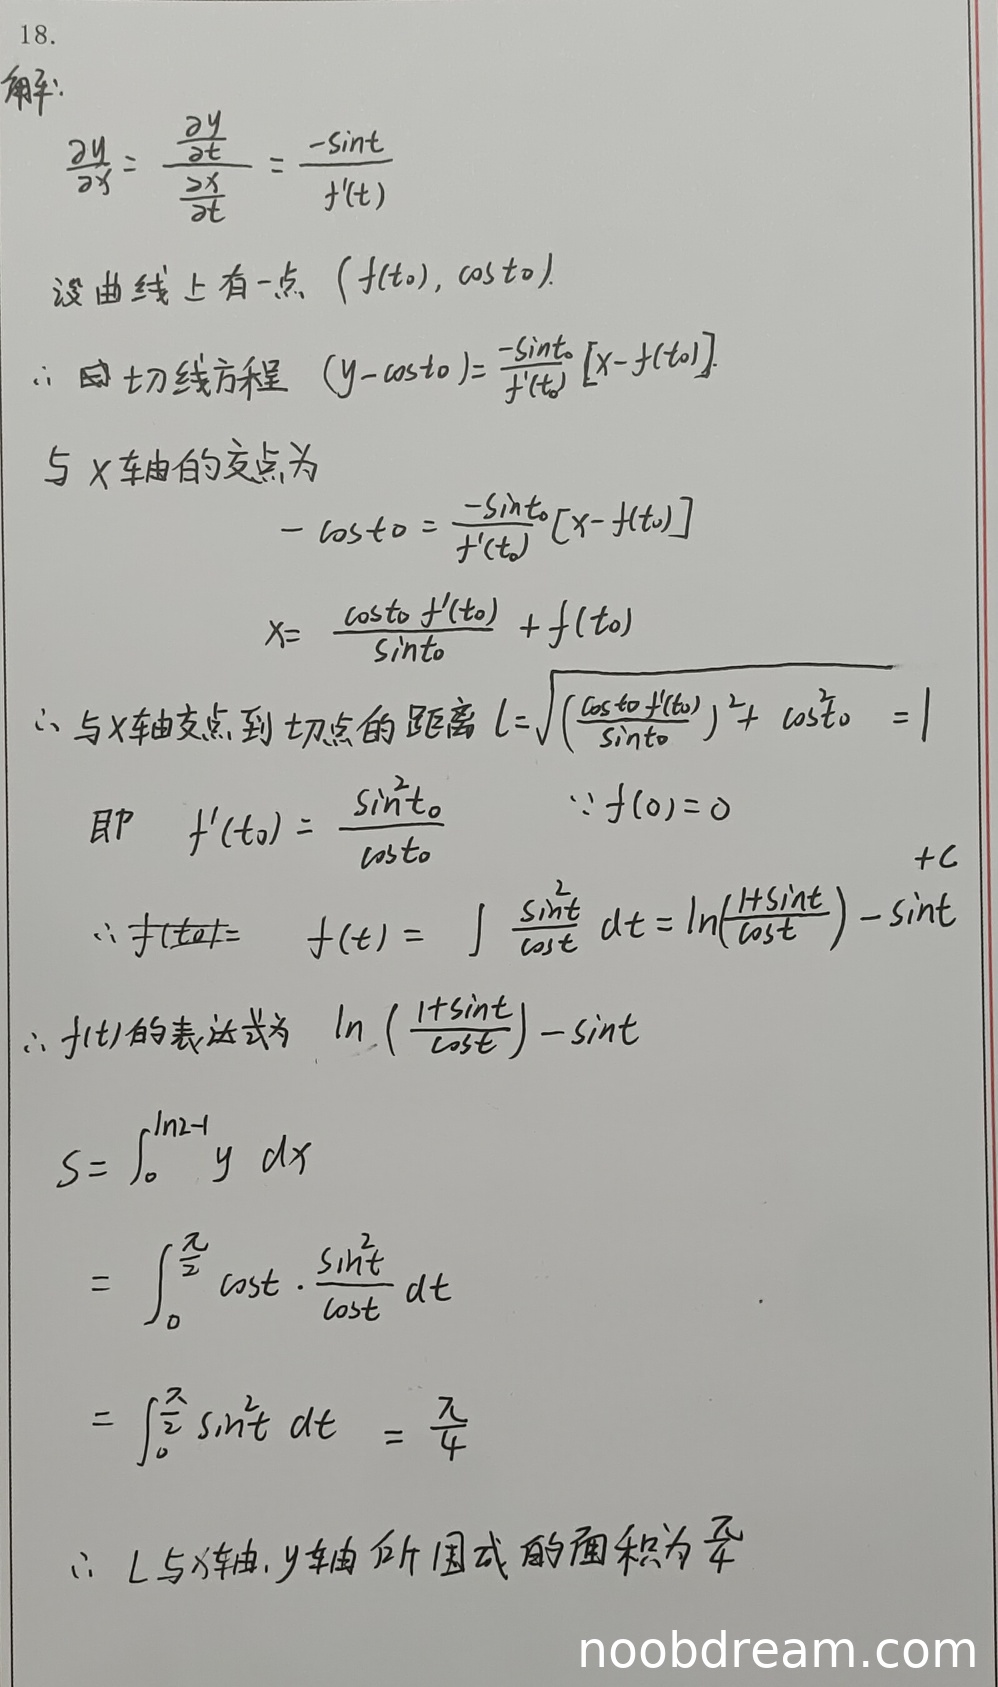 18.
解:
∂y/∂x = (∂y/∂t)/(∂x/∂t) = -sint/f'(t)
设曲线上有一点 (f(t₀), cost₀).
∴ 切线方程 (y-cost₀) = -sint₀/f'(t₀) [x-f(t₀)].
与X轴的交点为
-cost₀ = -sint₀/f'(t₀) [x-f(t₀)]
x = cost₀ f'(t₀)/sint₀ + f(t₀)
∴ 与X轴交点到切点的距离 l = √((cost₀ f'(t₀)/sint₀)² + cos²t₀) = 1
即 f'(t₀) = sin²t₀/cost₀ ∵ f(0) = 0
∴ f(t₀)= f(t) = ∫ sin²t/cost dt = ln((1+sint)/cost) - sint +C
∴ f(t)的表达式为 ln((1+sint)/cost) - sint
S = ∫₀^(ln2-1) y dx
= ∫₀^(π/2) cost · sin²t/cost dt
= ∫₀^(π/2) sin²t dt = π/4
∴ L与x轴,y轴所围成的面积为 π/4
noobdream.com